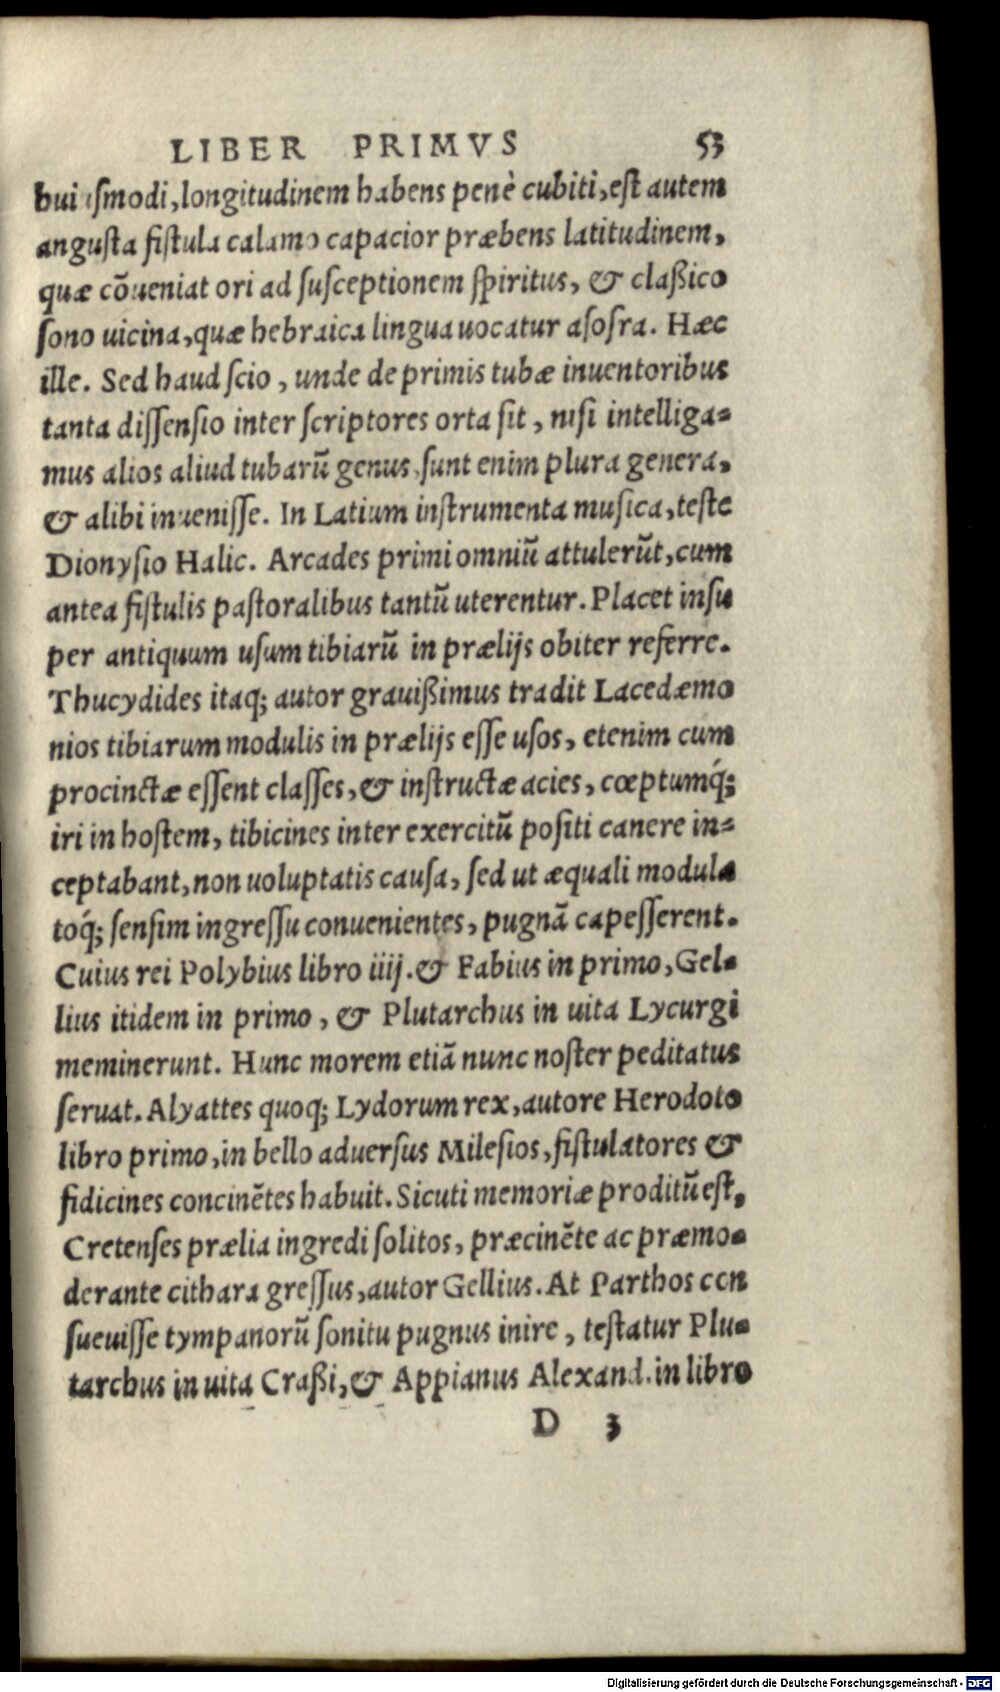 LIBER PRIMVS 53
huiusmodi, longitudinem habens penè cubiti, est autem
angusta fistula calamo capacior præbens latitudinem,
quæ cōueniat ori ad susceptionem spiritus, & claßico
sono uicina, quæ hebraica lingua uocatur asosra. Hæc
ille. Sed haud scio, unde de primis tubæ inuentoribus
tanta dissensio inter scriptores orta sit, nisi intelliga=
mus alios aliud tubarū genus, sunt enim plura genera,
& alibi inuenisse. In Latium instrumenta musica, teste
Dionysio Halic. Arcades primi omniū attulerūt, cum
antea fistulis pastoralibus tantū uterentur. Placet insu
per antiquum usum tibiarū in prælijs obiter referre.
Thucydides itaq; autor grauißimus tradit Lacedæmo
nios tibiarum modulis in prælijs esse usos, etenim cum
procinctæ essent classes, & instructæ acies, cœptumq́;
iri in hostem, tibicines inter exercitū positi canere in=
ceptabant, non uoluptatis causa, sed ut æquali modula
toq́; sensim ingressu conuenientes, pugnā capesserent.
Cuius rei Polybius libro iiij. & Fabius in primo, Gel=
lius itidem in primo, & Plutarchus in uita Lycurgi
meminerunt. Hunc morem etiā nunc noster peditatus
seruat. Alyattes quoq; Lydorum rex, autore Herodoto
libro primo, in bello aduersus Milesios, fistulatores &
fidicines concinētes habuit. Sicuti memoriæ proditū est,
Cretenses prælia ingredi solitos, præcinēte ac præmo=
derante cithara gressus, autor Gellius. At Parthos con
sueuisse tympanorū sonitu pugnus inire, testatur Plu=
tarchus in uita Craßi, & Appianus Alexand. in libro
D 3
Digitalisierung gefördert durch die Deutsche Forschungsgemeinschaft - DFG